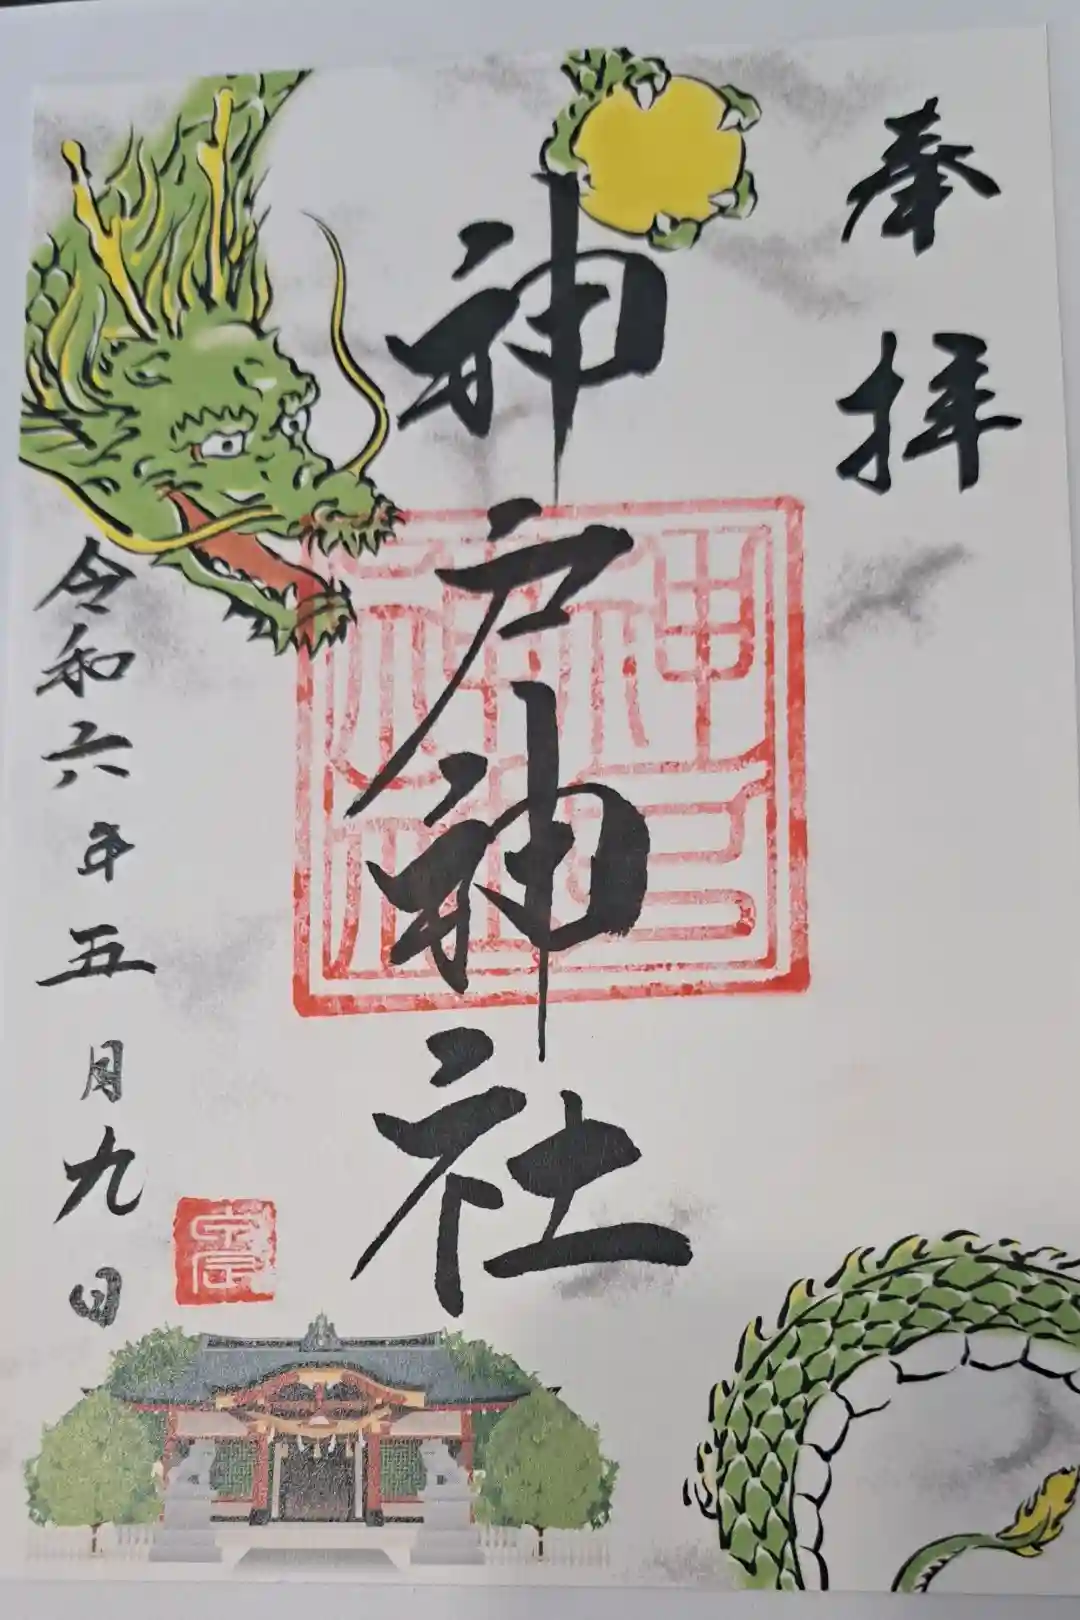 奉拝
神戸神社
神戸神社
令和六年五月九日